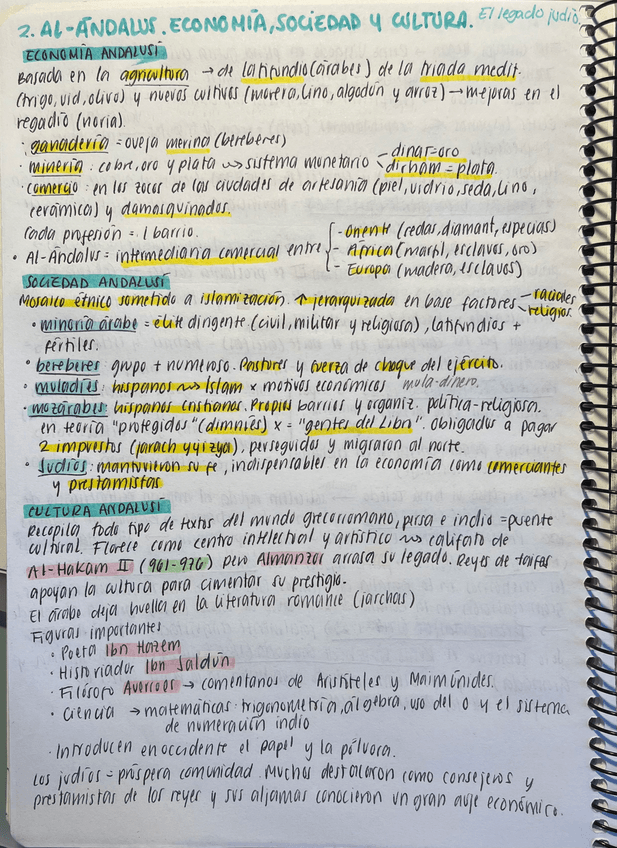 2. AL-ÁNDALUS. ECONOMÍA, SOCIEDAD Y CULTURA. El legado judío.
ECONOMÍA ANDALUSÍ
Basada en la agricultura → de latifundio (árabes) de la triada medit.
(trigo, vid, olivo) y nuevos cultivos (morera, lino, algodón y arroz) → mejoras en el
regadío (noria).
· ganadería = oveja merina (bereberes)
· minería : cobre, oro y plata ~> sistema monetario - dinar = oro
- dirham = plata.
· comercio : en los zocos de las ciudades de artesanía (piel, vidrio, seda, lino,
cerámica) y damasquinados.
Cada profesión = 1 barrio.
• Al-Ándalus = intermediaria comercial entre
- Oriente (sedas, diamant, especias)
- África (marfil, esclavos, oro)
- Europa (madera, esclavos)
SOCIEDAD ANDALUSÍ
Mosaico étnico sometido a islamización. ↑ jerarquizada en base factores - raciales
- religios.
• minoría árabe = élite dirigente (civil, militar y religiosa), latifundios +
fértiles.
• bereberes : grupo + numeroso. Pastores y fuerza de choque del ejército.
• muladíes : hispanos ~> Islam x motivos económicos mula-dinero.
• mozárabes : hispanos cristianos. Propios barrios y organiz. política-religiosa.
en teoría "protegidos" (dimmíes) x = "gentes del Libro". obligados a pagar
2 impuestos (jarach y yizya), perseguidos y migraron al norte.
• Judíos : mantuvieron su fe, indispensables en la economía como comerciantes
y prestamistas
CULTURA ANDALUSÍ
Recopila todo tipo de textos del mundo grecorromano, persa e indio = puente
cultural. Florece como centro intelectual y artístico ~> califato de
Al-Hakam II (961-976) pero Almanzor arrasa su legado. Reyes de taifas
apoyan la cultura para cimentar su prestigio.
El árabe deja huella en la literatura romance (jarchas)
Figuras importantes
• Poeta Ibn Hazem
• Historiador Ibn Jaldún
• Filósofo Averroes → comentarios de Aristóteles y Maimónides.
• Ciencia → matemáticas: trigonometría, álgebra, uso del 0 y el sistema
de numeración indio
· Introducen en occidente el papel y la pólvora.
Los judíos = próspera comunidad. Muchos destacaron como consejeros y
prestamistas de los reyes y sus aljamas conocieron un gran auge económico.